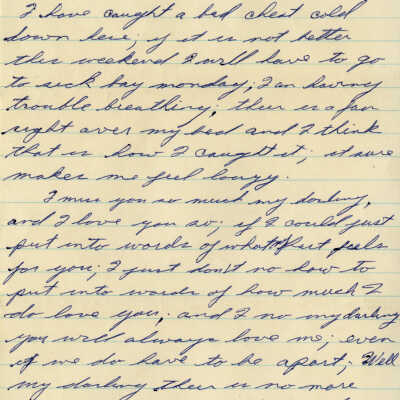 I have caught a bad chest cold
down here; if it is not better
this weekend I will have to go
to sick bay monday; I am having
trouble breathing; ther is a fan
right over my bed and I think
that is how I caught it; it sure
makes me feel lousy.
I miss you so much my darling,
and I love you so; if I could just
put into words of what feels
for you; I just don't no how to
put into words of how much I
do love you; and I no my darling
you will always love me; even
if we do have to be apart; Well
my darling ther is no more